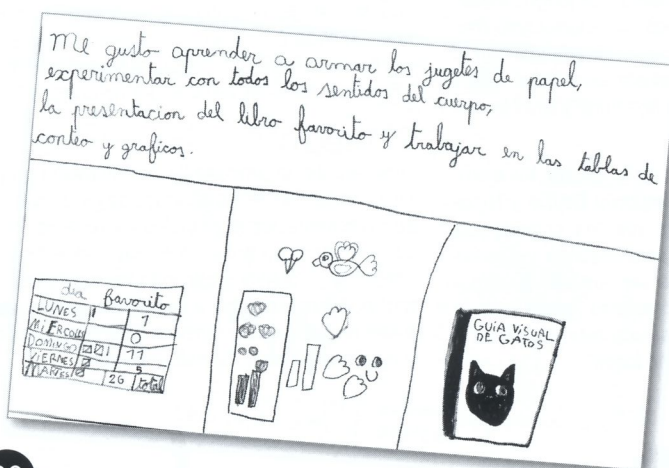 Me gusto aprender a armar los jugetes de papel,
experimentar con todos los sentidos del cuerpo,
la presentacion del libro favorito y trabajar en las tablas de
conteo y graficos.
dia favorito
LUNES 1
MIERCOLES 0
DOMINGO 11
VIERNES 5
MARTES 26 total
GUIA VISUAL
DE GATOS